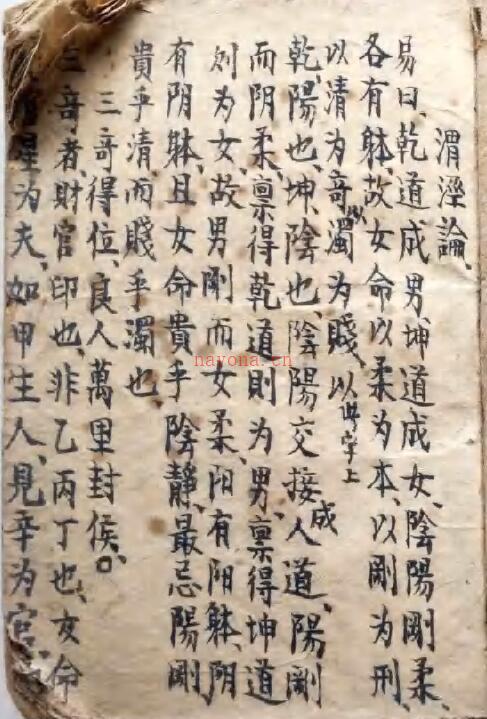 渭涇論、
易曰、乾道成男、坤道成女、陰陽剛柔、
各有躰、故女命以柔為本、以剛為刑、
以清為奇、以濁為賤、以此字上
乾、陽也、坤、陰也、陰陽交接成人道、陽剛
而阴柔、禀得乾道則为男、禀得坤道
则为女、故男剛而女柔、阳有阳躰、阴
有阴躰、且女命貴乎陰靜、最忌陽剛
貴乎清、而賤乎濁也、
三奇得位、良人萬里封侯、
三奇者、財官印也、非乙丙丁也、女命
星为夫、如甲生人、見辛为官、
nayona.cn